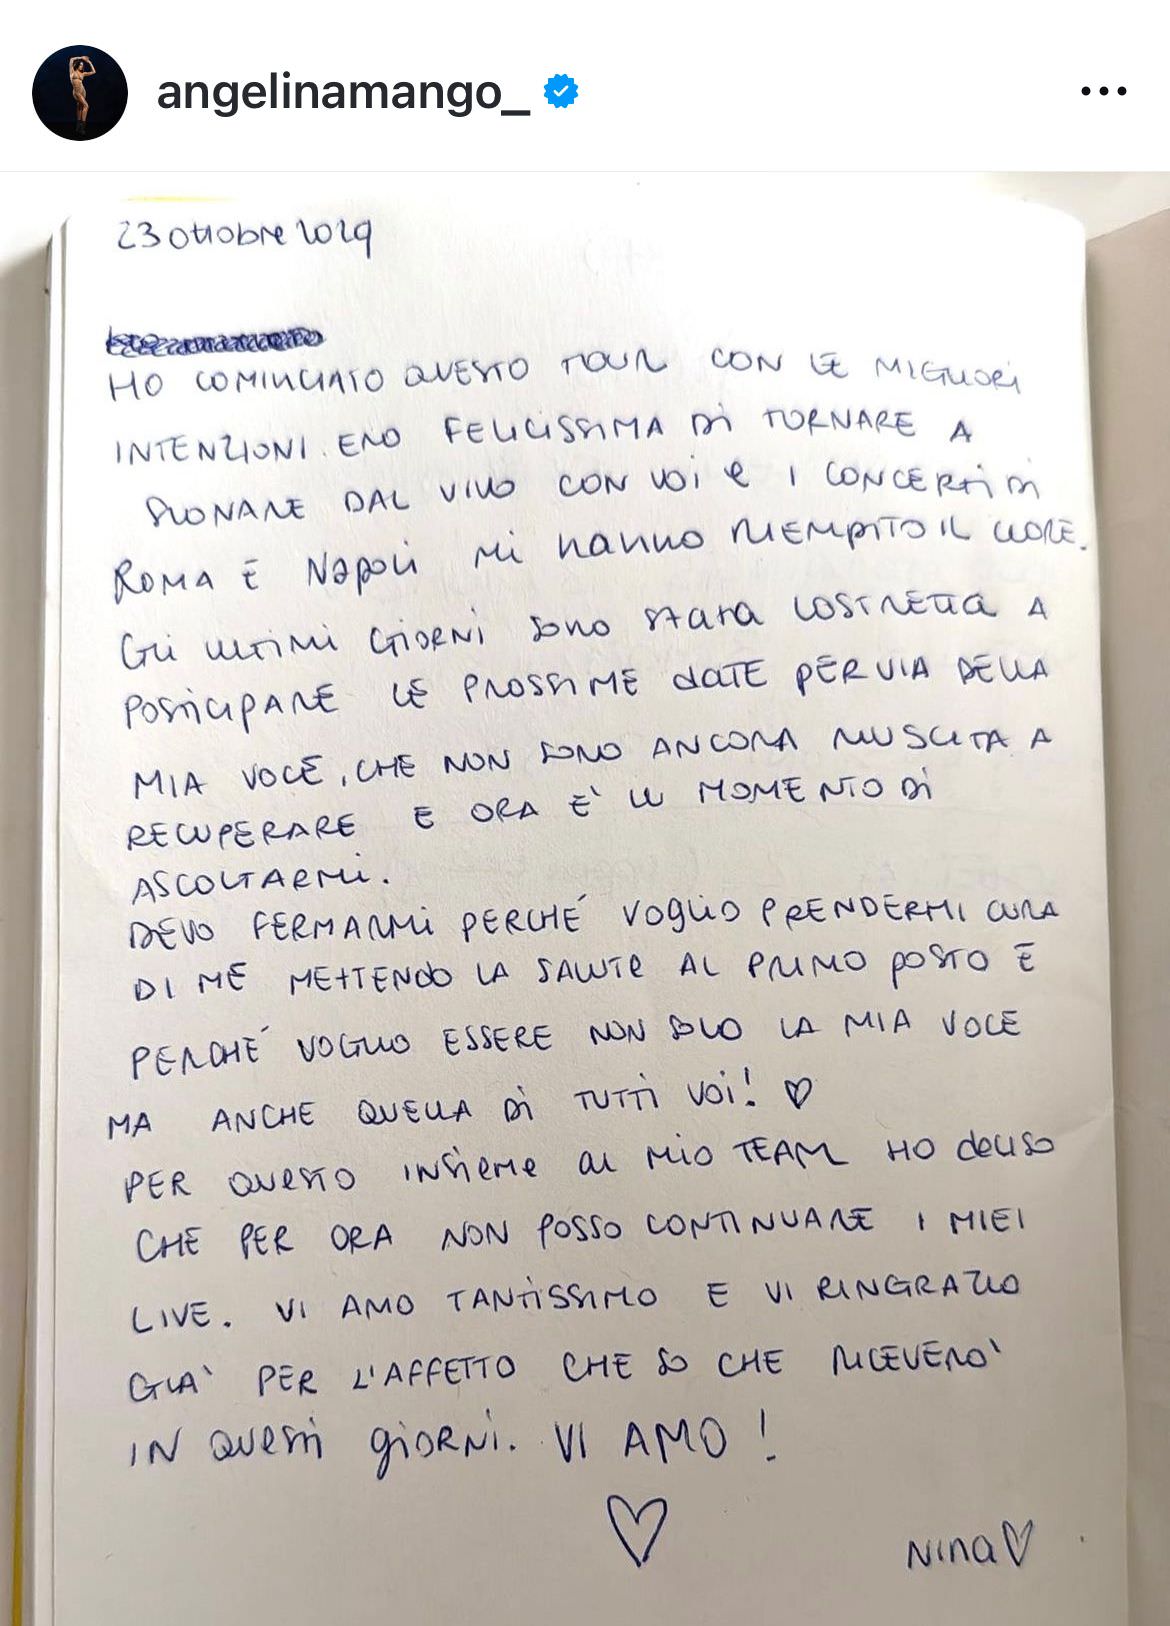 angelinamango_
23 ottobre 2024
HO COMINCIATO QUESTO TOUR CON LE MIGLIORI
INTENZIONI. ERO FELICISSIMA DI TORNARE A
SUONARE DAL VIVO CON VOI e I CONCERTI DI
ROMA E NAPOLI MI hanno RIEMPITO IL CUORE.
Gli ULTIMI GIORNI SONO stata COSTRETTA A
POSTICIPARE LE PROSSIME dATE PER VIA DELLA
MIA VOCE, CHE NON SONO ANCORA RIUSCITA A
RECUPERARE E ORA E' IL MOMENTO DI
ASCOLTARMI.
DEVO FERMARMI PERCHÉ VOGLIO PRENDERMI CURA
DI ME METTENDO LA SALUTE AL PRIMO POSTO E
PERCHÉ VOGLIO ESSERE NON SOLO LA MIA VOCE
MA ANCHE QUELLA DI TUTTI VOI! ♡
PER QUESTO INSIEME AL MIO TEAM HO deciso
CHE PER ORA NON POSSO CONTINUARE I MIEI
LIVE. VI AMO TANTISSIMO E VI RINGRAZIO
GIA' PER L'AFFETTO CHE SO CHE RICEVERO'
IN QUESTI GIORNI. VI AMO!
♡
Nina♡